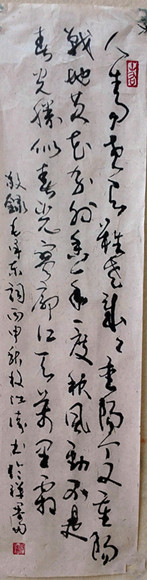 人生易老天難老歲々重陽今又重陽
戰地黃花分外香一年一度秋風勁不是
春光勝似春光寥廓江天萬里霜
敬錄毛澤東詞丙申秋江濤書於